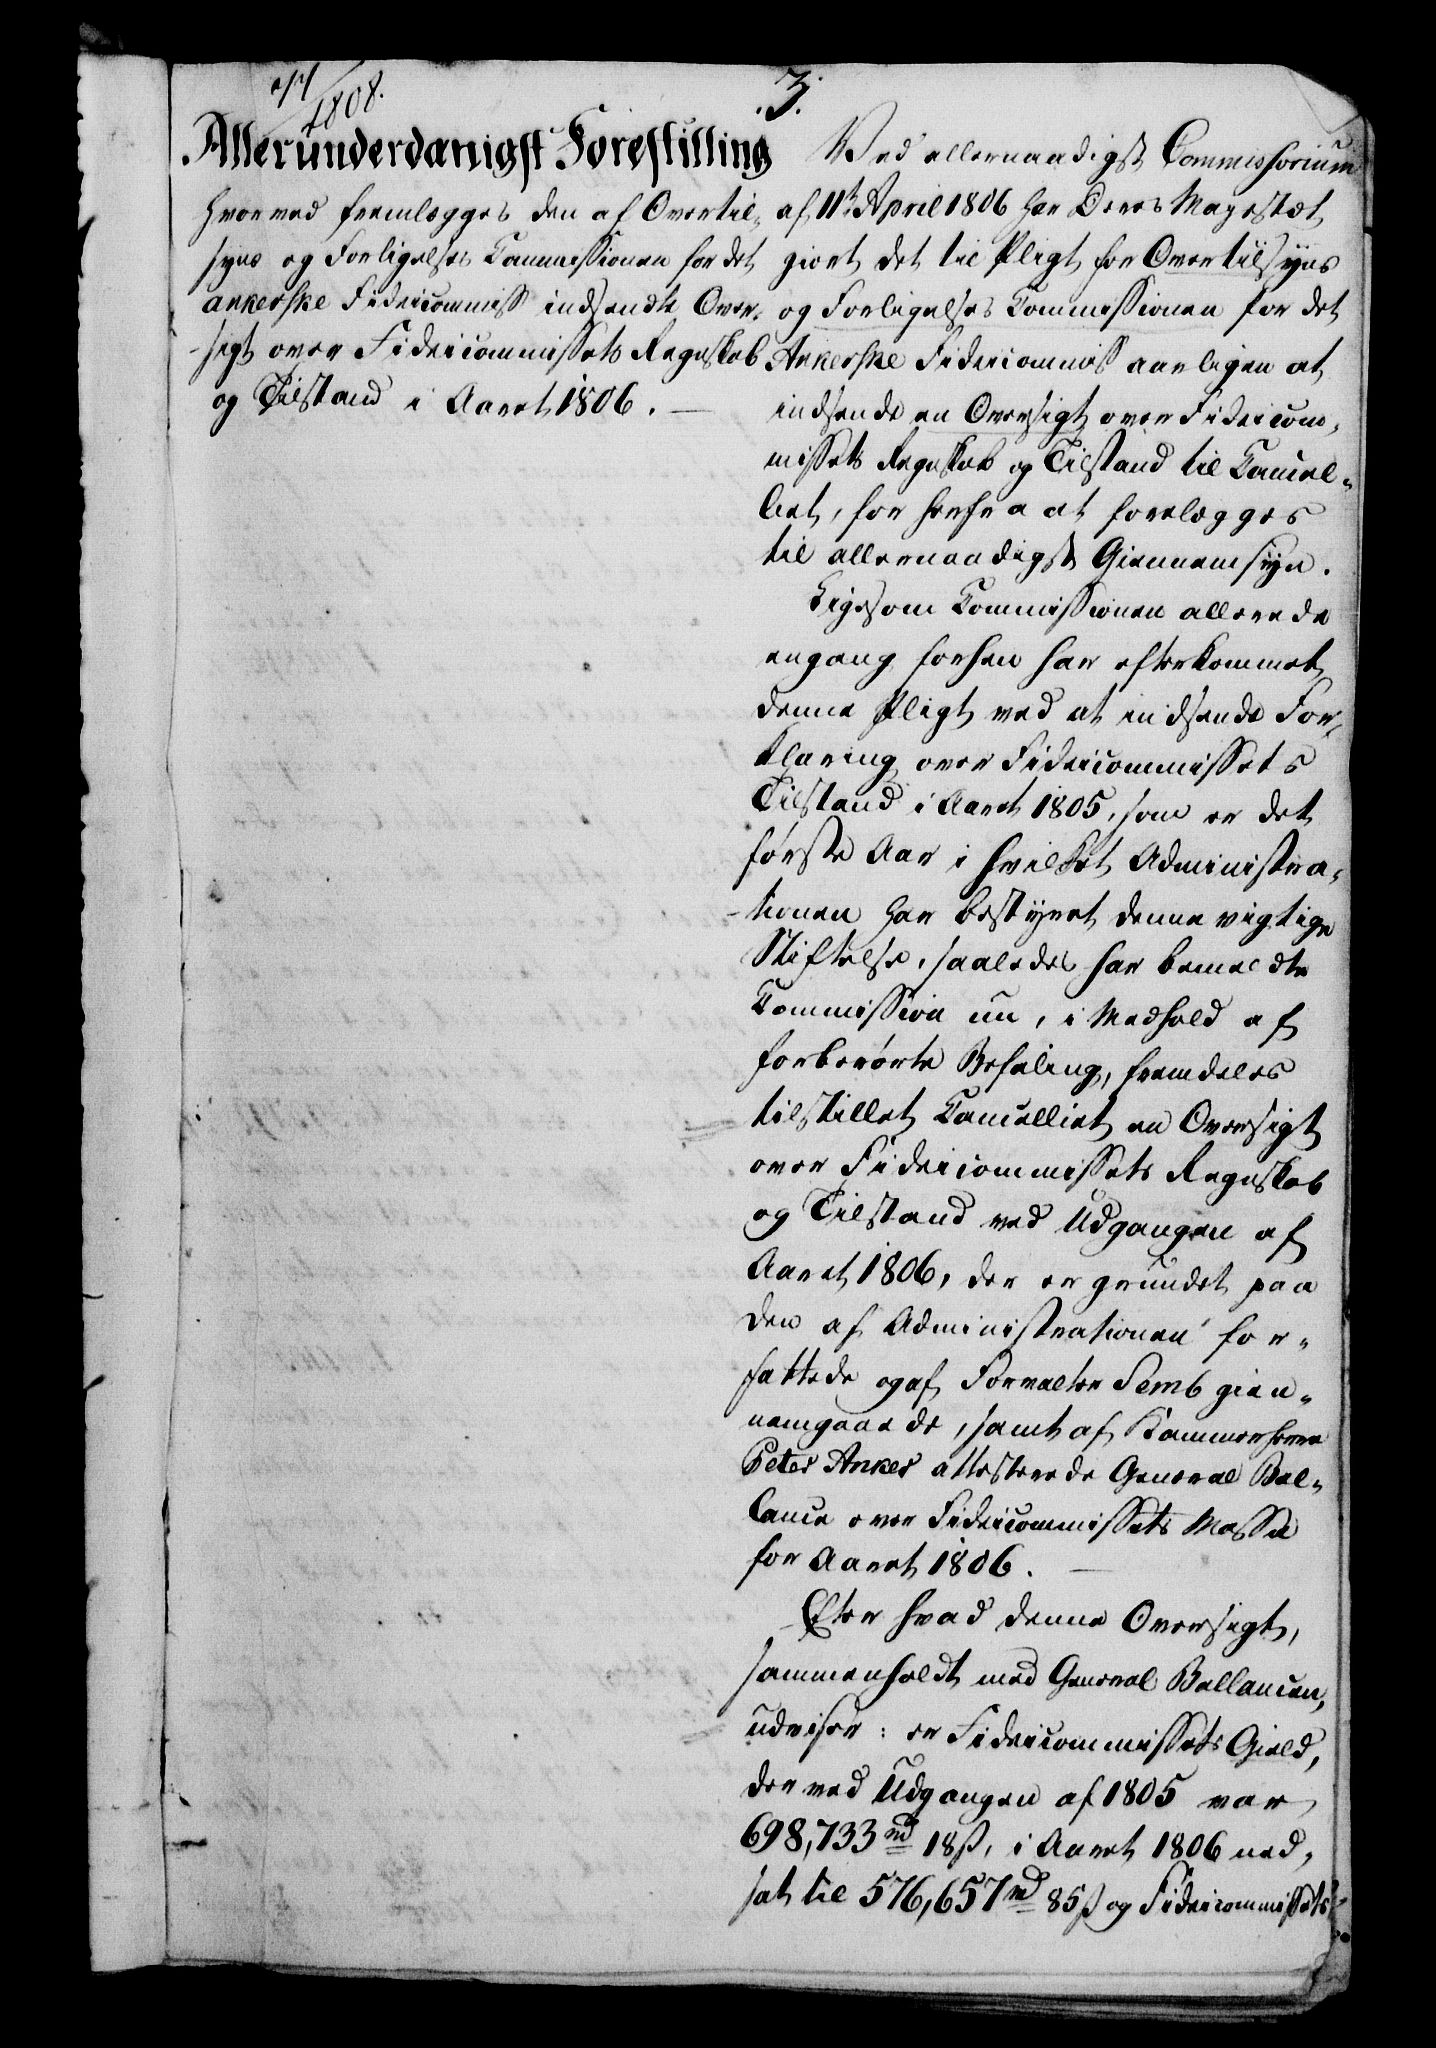 1808.
3.
Allerunderdanigst Forestilling
hvorved fremlægges den af Overtil-
syns og Forligelses Commissionen for det
ankerske Fideicommiss indsendte Over-
sigt over Fideicommissets Regnskab
og Tilstand i Aaret 1806. —
Ved allernaadigst Commissorium
af 11te April 1806 har Deres Majestæt
giort det til Pligt for Overtilsyns
og Forligelses Commissionen for det
Ankerske Fideicommis aarligen at
indsende en Oversigt over Fideicom-
missets Regnskab og Tilstand til Cancel-
liet, for herfra at forelægges
til allernaadigst Giennemsyn.
Ligesom Commissionen allerede
engang forhen har efterkommet
denne Pligt ved at indsende For-
klaring over Fideicommissets
Tilstand i Aaret 1805, som er det
første Aar i hvilket Administra-
tionen har bestyret denne vigtige
Stiftelse, saaledes har bemeldte
Commission nu, i Medhold af
forberørte Befaling, fremdeles
tilstillet Cancelliet en Oversigt
over Fideicommissets Regnskab
og Tilstand ved Udgangen af
Aaret 1806, der er grundet paa
den af Administrationen for-
fattede og af Forvalter Semb gien-
nemgaaede, samt af Kammerherre
Peter Anker attesterede General Bal-
lance over Fideicommissets Masse
for Aaret 1806. —
Efter hvad denne Oversigt,
sammenholdt med General Ballancen,
udviser: er Fideicommissets Gield,
der ved Udgangen af 1805 var
698,733 rd 18 ß, i Aaret 1806 ned-
sat til 576,657 rd 85 ß og Fideicommissets